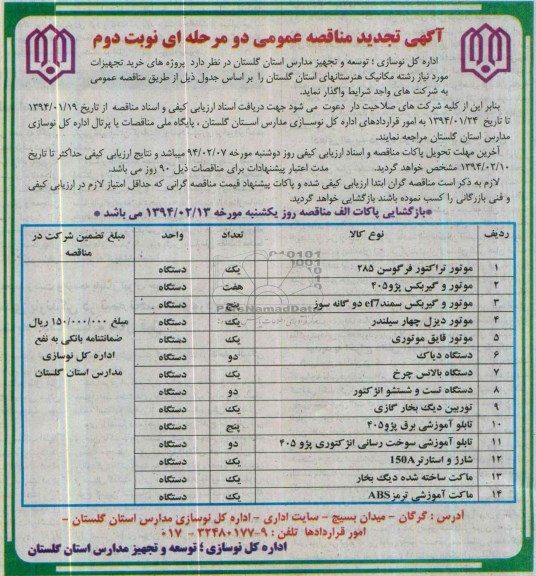 آگهی تجدید مناقصه عمومی دو مرحله ای نوبت دوم
اداره کل نوسازی ؛ توسعه و تجهیز مدارس استان گلستان در نظر دارد پروژه های خرید تجهیزات
مورد نیاز رشته مکانیک هنرستانهای استان گلستان را بر اساس جدول ذیل از طریق مناقصه عمومی
به شرکت های واجد شرایط واگذار نماید.
بنابر این از کلیه شرکت های صلاحیت دار دعوت می شود جهت دریافت اسناد ارزیابی کیفی و اسناد مناقصه از تاریخ ۱۳۹۴/۰۱/۱۹
تا تاریخ ۱۳۹۴/۰۱/۲۴ به امور قراردادهای اداره کل نوسازی مدارس استان گلستان ، پایگاه ملی مناقصات یا پرتال اداره کل نوسازی
مدارس استان گلستان مراجعه نمایند.
آخرین مهلت تحویل پاکات مناقصه و اسناد ارزیابی کیفی روز دوشنبه مورخه ۹۴/۰۲/۰۷ میباشد و نتایج ارزیابی کیفی حداکثر تا تاریخ
۱۳۹۴/۰۲/۱۰ مشخص خواهد گردید. مدت اعتبار پیشنهادات برای مناقصات ذیل ۹۰ روز می باشد.
لازم به ذکر است مناقصه گران ابتدا ارزیابی کیفی شده و پاکات پیشنهاد قیمت مناقصه گرانی که حداقل امتیاز لازم در ارزیابی کیفی
و فنی بازرگانی را کسب نموده باشند بازگشایی خواهد گردید.
*بازگشایی پاکات الف مناقصه روز یکشنبه مورخه ۱۳۹۴/۰۲/۱۳ می باشد *
ردیف نوع کالا تعداد واحد مبلغ تضمین شرکت در مناقصه
۱ موتور تراکتور فرگوسن ۲۸۵ یک دستگاه
۲ موتور و گیربکس پژو۴۰۵ هفت دستگاه
۳ موتور و گیربکس سمندef7 دو گانه سوز پنج دستگاه
۴ موتور دیزل چهار سیلندر یک دستگاه
۵ موتور قایق موتوری یک دستگاه
۶ دستگاه دیاک دو دستگاه
۷ دستگاه بالانس چرخ یک دستگاه
۸ دستگاه تست و شستشو انژکتور دو دستگاه
۹ توربین دیگ بخار گازی یک دستگاه
۱۰ تابلو آموزشی برق پژو۴۰۵ پنج دستگاه
۱۱ تابلو آموزشی سوخت رسانی انژکتوری پژو ۴۰۵ دو دستگاه
۱۲ شارژ و استارتر150A یک دستگاه
۱۳ ماکت ساخته شده دیگ بخار یک دستگاه
۱۴ ماکت آموزشی ترمزABS یک دستگاه
مبلغ ۱۵۰/۰۰۰/۰۰۰ ریال
ضمانتنامه بانکی به نفع
اداره کل نوسازی
مدارس استان گلستان
ParsNamadData
آدرس : گرگان - میدان بسیج - سایت اداری - اداره کل نوسازی مدارس استان گلستان -
امور قراردادها تلفن : ۹-۳۲۴۸۰۱۷۷ - ۰۱۷
اداره کل نوسازی ؛ توسعه و تجهیز مدارس استان گلستان